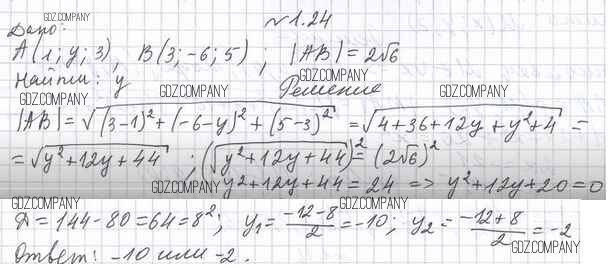 GDZ.COMPANY
№1.24
Дано:
GDZ.COMPANY GDZ.COMPANY
A(1; y; 3), B(3; -6; 5); |AB| = 2√6
Найти: y
Решение
GDZ.COMPANY
GDZ.COMPANY GDZ.COMPANY GDZ.COMPANY
|AB| = √((3-1)² + (-6-y)² + (5-3)²) = √(4+36+12y+y²+4) =
= √(y²+12y+44) ; (√(y²+12y+44))² = (2√6)²
GDZ.COMPANY y²+12y+44 = 24 => y²+12y+20=0
GDZ.COMPANY GDZ.COMPANY
Д = 144-80=64=8²; y₁ = (-12-8)/2 = -10; y₂ = (-12+8)/2 = -2
GDZ.COMPANY
Ответ: -10 или -2.